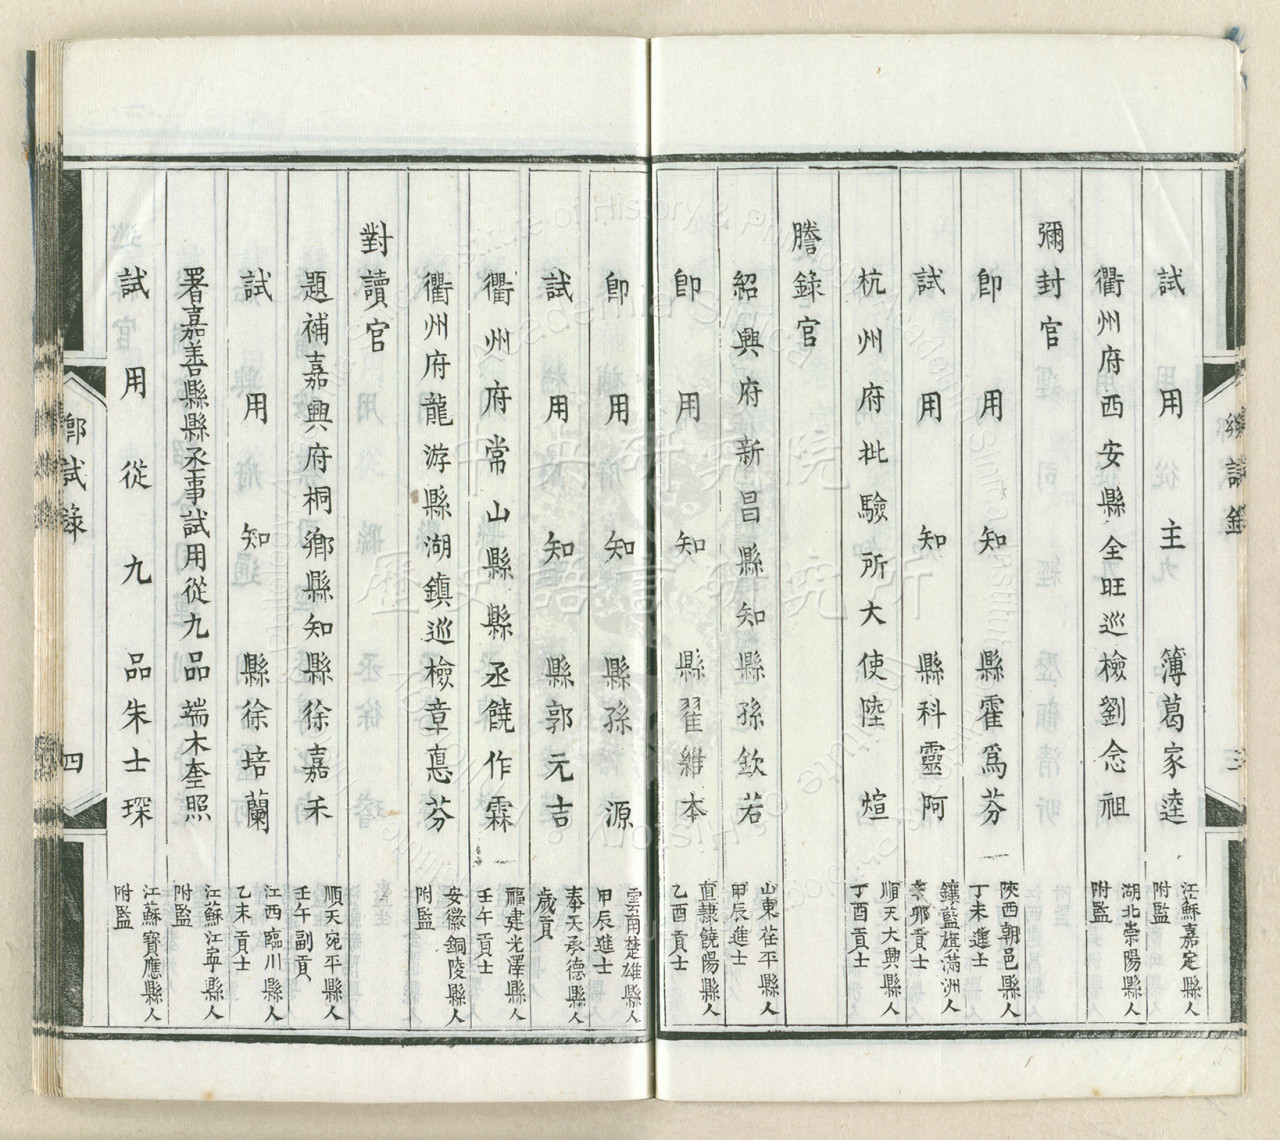 試用主簿葛家逵 江蘇嘉定縣人
附監
衢州府西安縣全旺巡檢劉念祖 湖北崇陽縣人
附監
彌封官
卽用知縣霍為芬 陝西朝邑縣人
丁未進士
試用知縣科靈阿 鑲藍旗滿洲人
貢士
杭州府批驗所大使陸煊 順天大興縣人
丁酉貢士
謄錄官
紹興府新昌縣知縣孫欽若 山東茌平縣人
甲辰進士
卽用知縣翟維本 直隸饒陽縣人
乙酉貢士
卽用知縣孫源 雲南楚雄縣人
甲辰進士
試用知縣郭元吉 奉天承德縣人
歲貢
衢州府常山縣縣丞饒作霖 福建光澤縣人
壬午貢士
衢州府龍游縣湖鎮巡檢章惪芬 安徽銅陵縣人
附監
對讀官
題補嘉興府桐鄉縣知縣徐嘉禾 順天宛平縣人
壬午副貢
試用知縣徐培蘭 江西臨川縣人
乙未貢士
署嘉善縣縣丞事試用從九品端木奎照 江蘇江寧縣人
附監
試用從九品朱士琛 江蘇寶應縣人
附監
鄉試錄
四